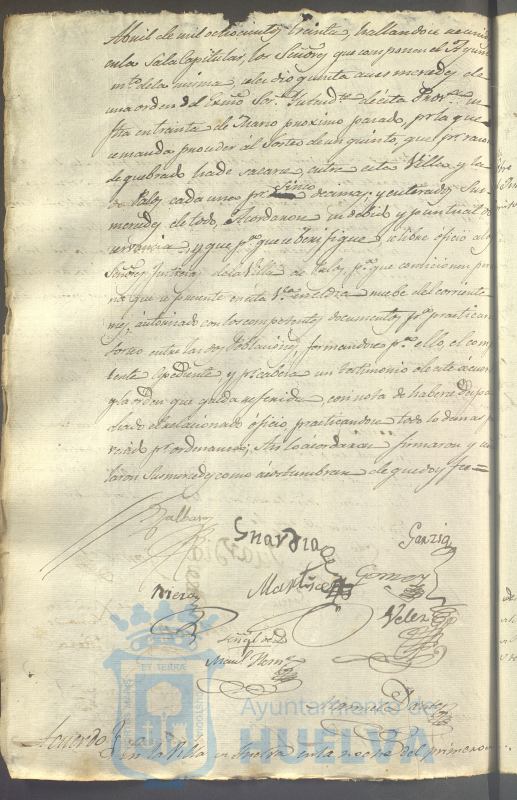 Abril de mil ochocientos treinta hallandose reunid
en la Sala Capitular los Señores que componen el Ayun
mto. de la misma, se dio quenta a sus mercedes de
una orden del Señor Intendte. de esta Prova. su
fha en treinta de Marzo proximo pasado, por la que
se manda proceder al Sorteo de un quinto, que pr. razon
de quebrados ha de sacarse entre esta Villa y la
de Palos cada una pr. cinco decimas, y enterados Sus
mercedes de todo, Acordaron su debida y puntual ob
servancia y que pa. que se berifique se libre oficio a los
Señores Justicia de la Villa de Palos, pa. que comicionen per
na que se presente en esta Va. en el dia nuebe del corriente
mes, autorizado con los competentes documentos pa. practicar
sorteo entre las dos Poblaciones, formandose pa. ello, el comp
tente Espediente y pr. cabeza un testimonio de este acuer
y la orden que queda referida, con nota de haberse despa
chado el relacionado oficio practicandose todo lo demas p
venido pr. ordenanza; Asi lo acordaron firmaron y se
laron Sus mercedes como acostumbran de que doy fee =
Balbas
Guardia
Garzia
Mera
Martinez
Gomez
Velez
Señal de
Manl. Rom
Acuerdo
En la Villa de Huelva en la noche del primero
ET TERRA
CUSTODIA
Ayuntamiento de
HUELVA